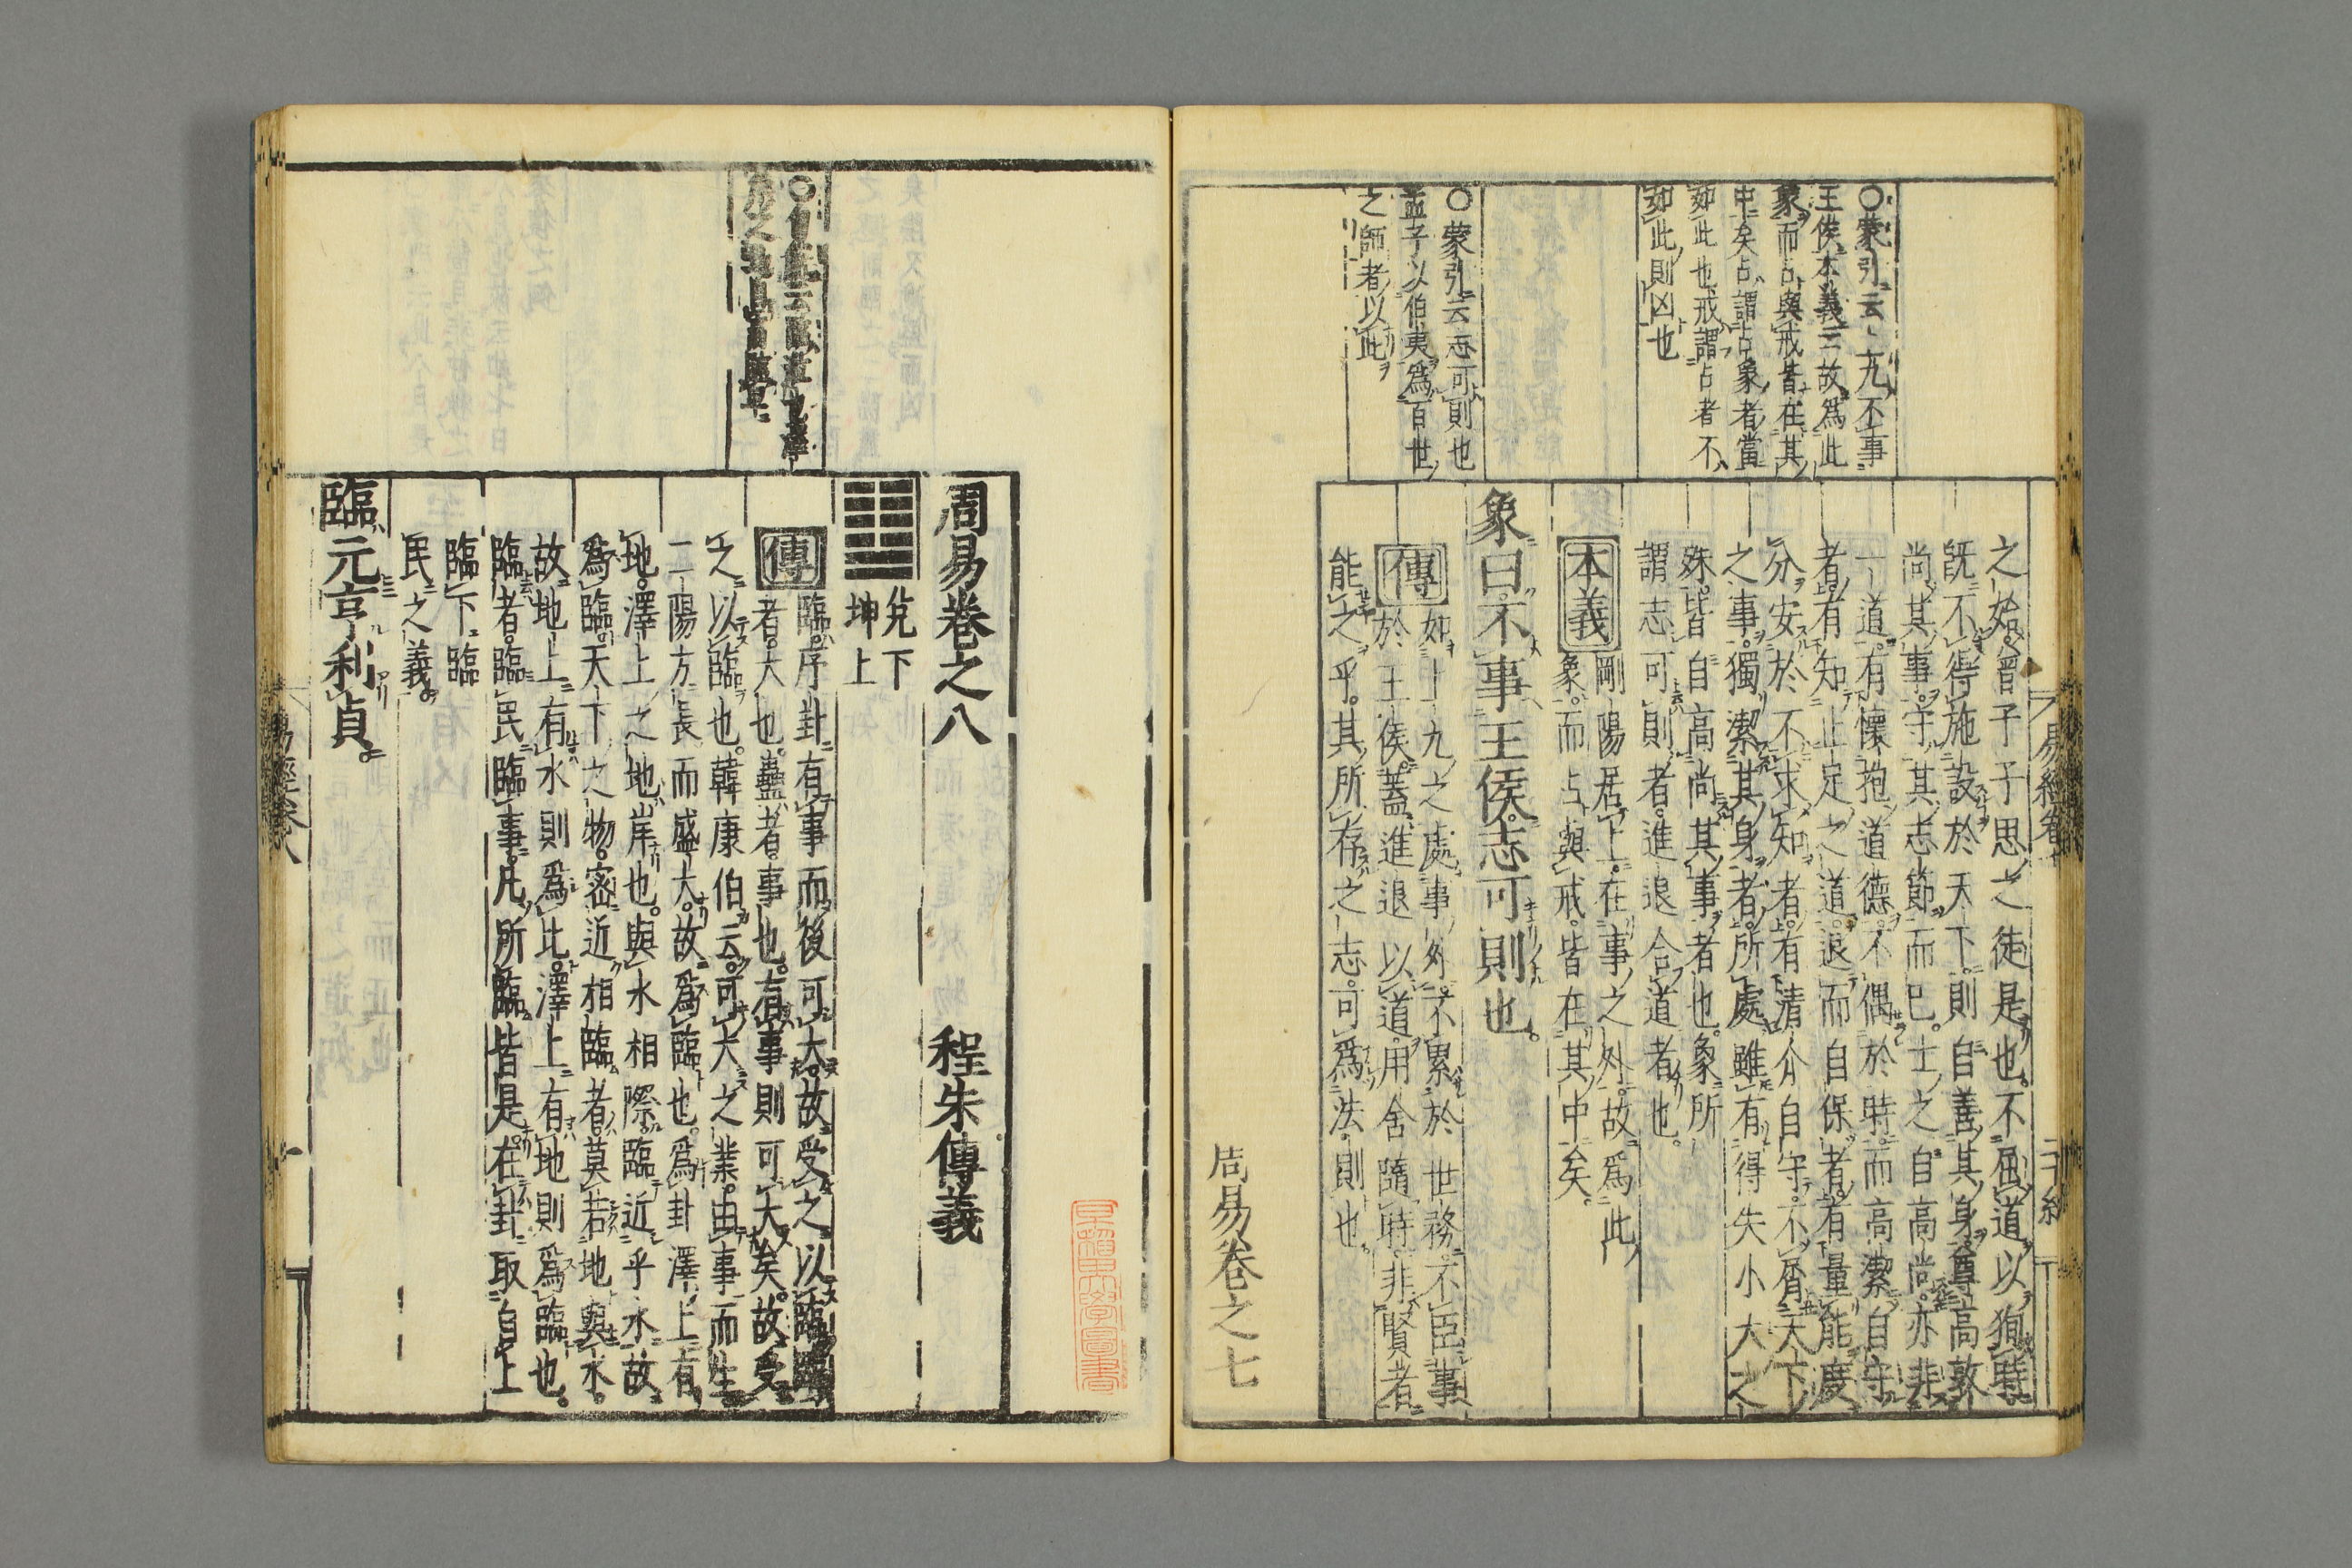 ○蒙引云上九不事
王侯本義云故爲此
象而占與戒皆在其
中矣占謂占象者當
如此也戒謂占者不
如此則凶也
○蒙引云志可則也
孟子以伯夷爲百世
之師者以此
之始曾子子思之徒是也不屈道以狥時
既不得施設於天下則自善其身尊高敦
尚其事守其志節而已士之自高尚亦非
一道有懷抱道德不偶於時而高潔自守
者有知止足之道退而自保者有量能度
分安於不求知者有清介自守不屑天下
之事獨潔其身者所處雖有得失小大之
殊皆自高尚其事者也象所
謂志可則者進退合道者也
本義 剛陽居上在事之外故爲此
象而占與戒皆在其中矣
象曰不事王侯志可則也
傳 如上九之處事外不累於世務不臣事
於王侯蓋進退以道用舍隨時非賢者
能之乎其所存之志可爲法則也
周易卷之七
周易卷之八 程朱傳義
兌下
坤上
傳 臨序卦有事而後可大故受之以臨臨
者大也蠱者事也有事則可大矣故受
之以臨也韓康伯云可大之業由事而生
二陽方長而盛大故爲臨也爲卦澤上有
地澤上之地岸也與水相際臨近乎水故
爲臨天下之物密近相臨者莫若地與水
故地上有水則爲比澤上有地則爲臨也
臨者臨民臨事凡所臨皆是在卦取自上
臨下臨
民之義
臨元亨利貞
易經卷八